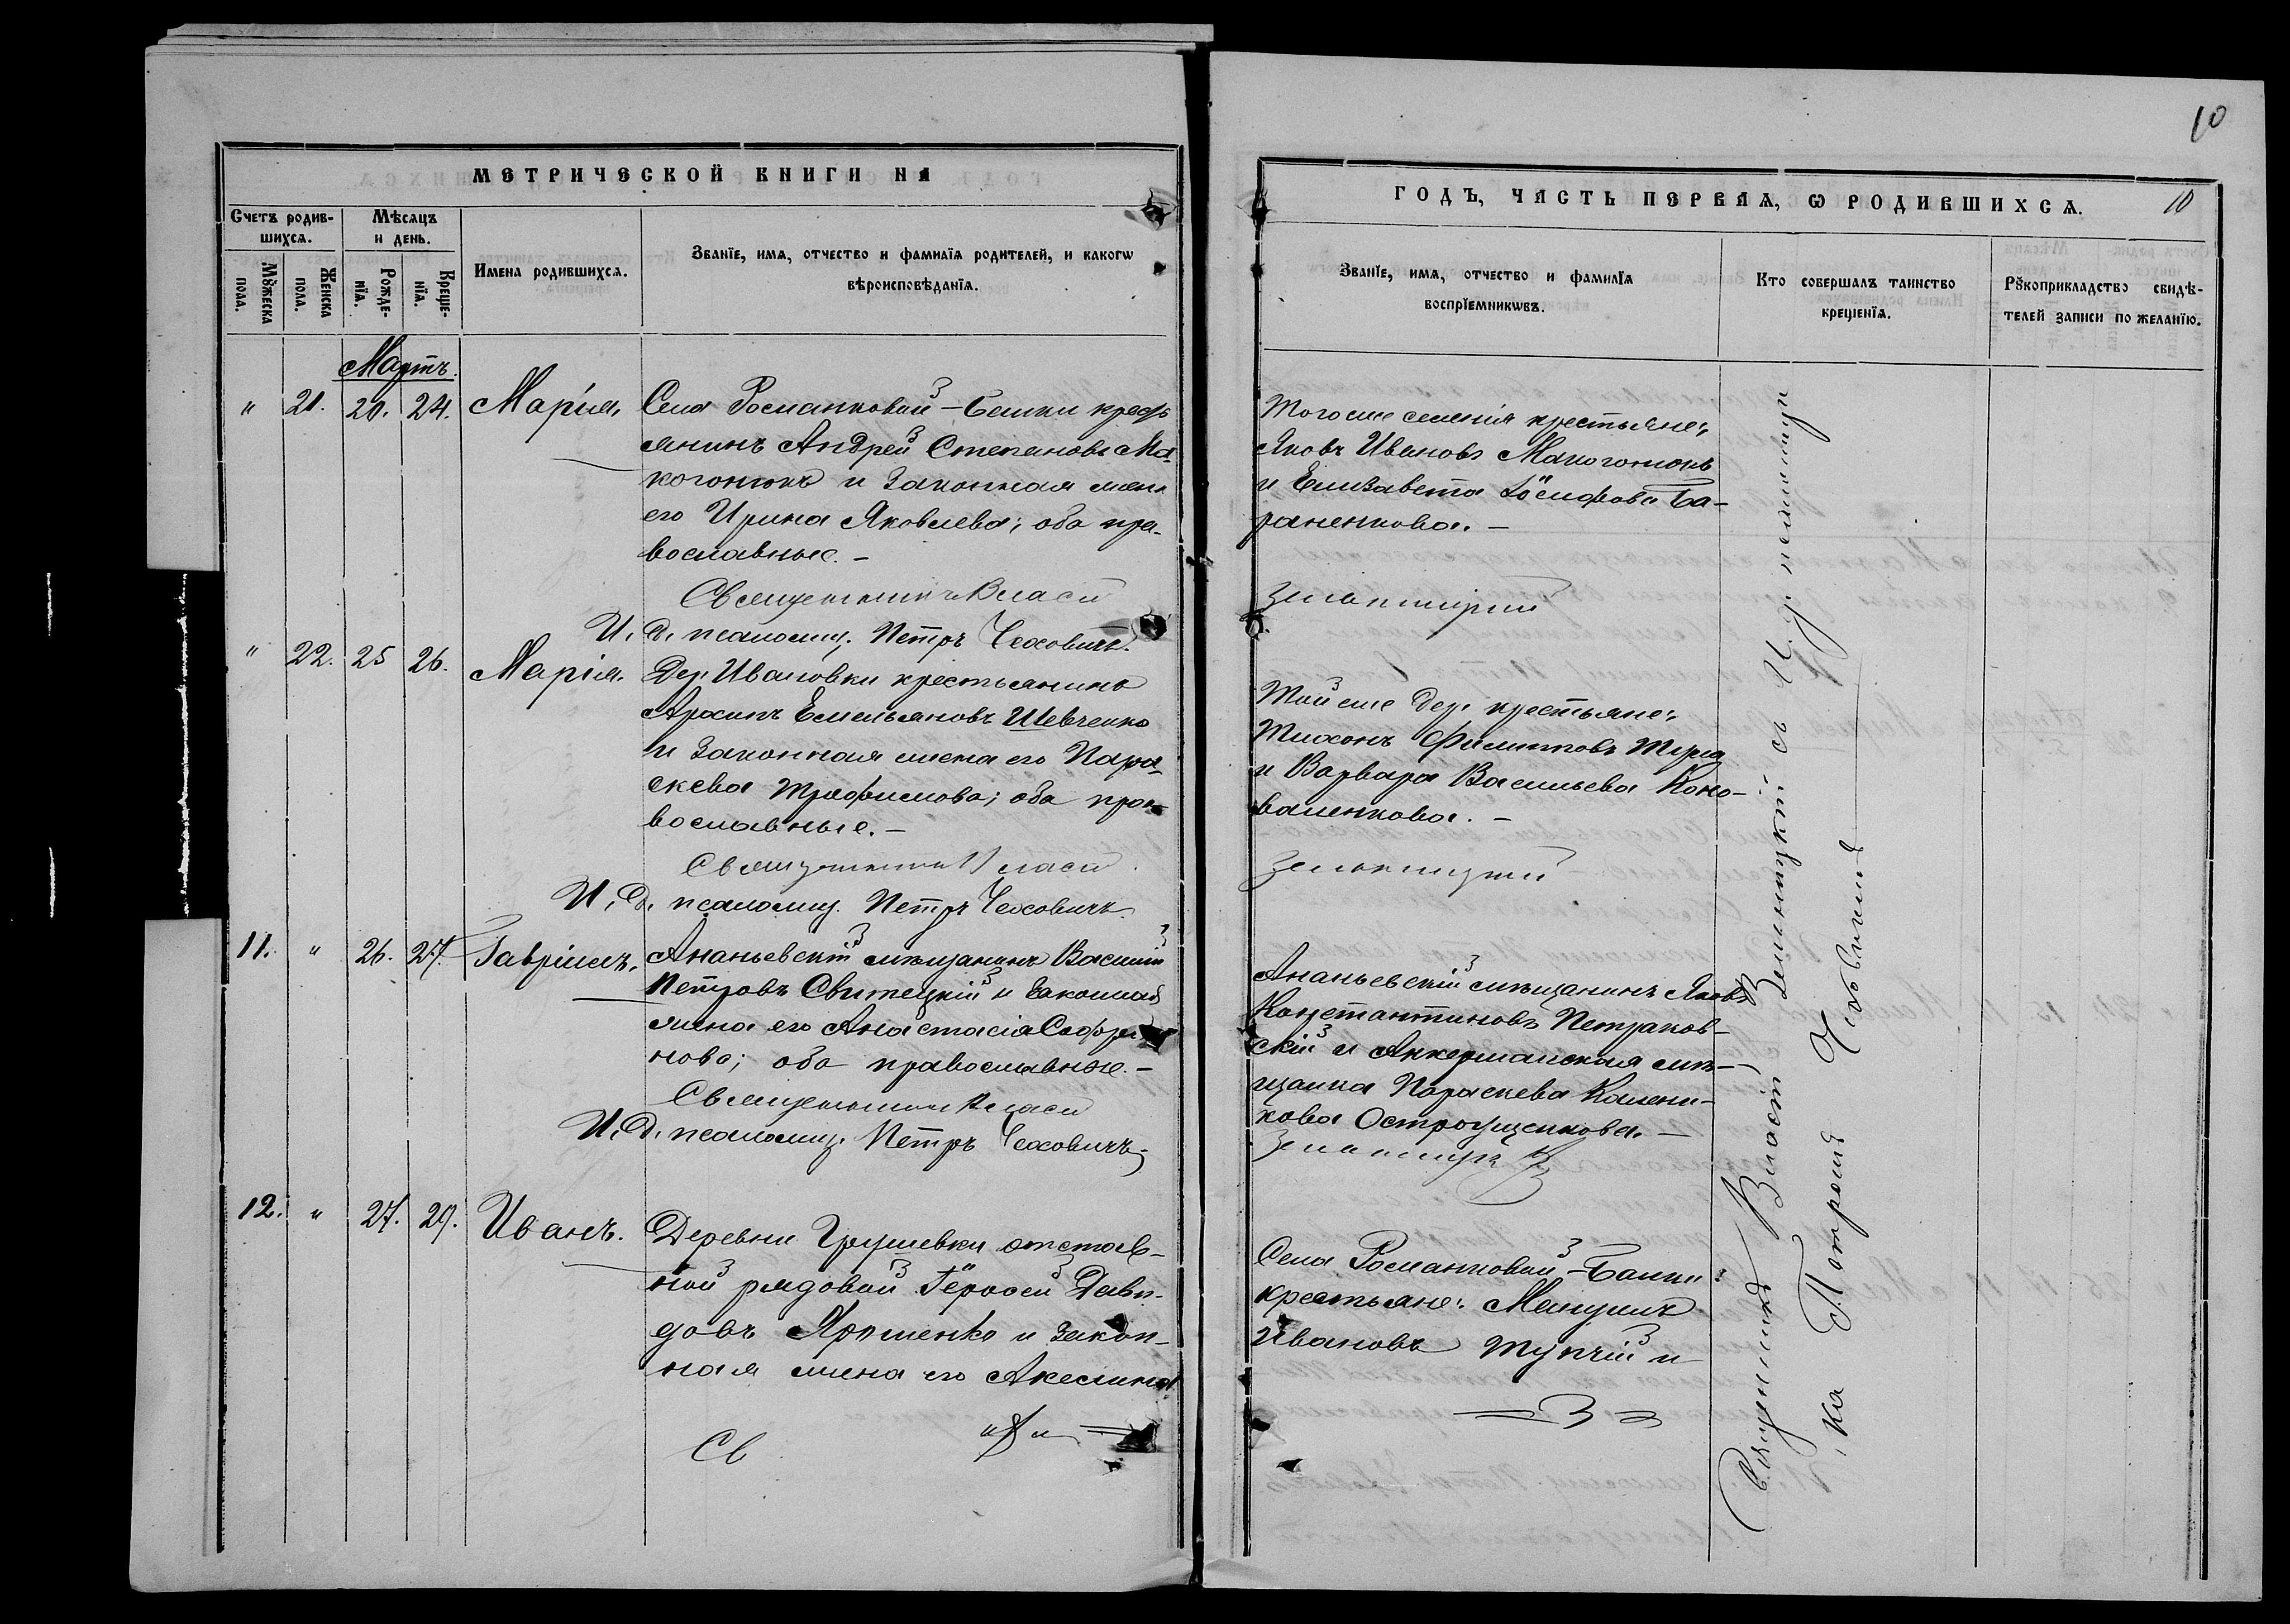 МЕТРИЧЕСКОЙ КНИГИ НА
Счетъ родив-
шихся.
Мѣсяцъ
и день.
Мꙋжеска
пола.
Женска
пола.
Рожде-
нїя.
Креще-
нїя.
Имена родившихся.
Званїе, имя, отчество и фамилїя родителей, и какогѡ
вѣроисповѣданїя.
Мартъ.
" 21. 20. 24. Марія.
Села Романковой-Балки кресть
янинъ Андрей Степановъ Ма-
когонюкъ и законная жена
его Ирина Яковлева; оба пра-
вославные.-
Священникъ Власій
И. д. псаломщ. Петръ Чеховичъ.
" 22. 25 26. Марія.
Дер. Ивановки крестьянинъ
Архипъ Емельяновъ Шевченко
и законная жена его Пара-
скева Трофимова; оба пра-
вославные.-
Священникъ Власій
И. д. псаломщ. Петръ Чеховичъ
11. " 26. 27. Гавріилъ.
Ананьевскій мѣщанинъ Василій
Петровъ Свитецкій и законная
жена его Анастасія Софро
нова; оба православные.-
Священникъ Власій
И. д. псаломщ. Петръ Чеховичъ
12. " 27. 29. Иванъ.
Деревни Грушевки отстав-
ной рядовой Герасей Дави-
довъ Ярошенко и закон-
ная жена его Аксинія
Св
10
ГОДЪ, ЧАСТЬ ПЕРВАЯ, Ѡ РОДИВШИХСЯ. 10
Званїе, имя, отчество и фамилїя
воспрїемникѡвъ.
Кто совершалъ таинство
крещенїя.
Рꙋкоприкладство свидѣ-
телей записи по желанїю.
Того же селенія крестьяне:
Яковъ Ивановъ Макогонюкъ
и Елизавета Іосифова Ба-
раненкова.-
Зелинскій
Той же дер. крестьяне:
Тихонъ Филиповъ
и Варвара Васильева Коно-
валенкова.-
Ананьевскій мѣщанинъ Яковъ
Константиновъ Петраков-
скій и Аккерманская мѣ-
щанка Параскева Калени-
кова Остроущенкова.-
Села Романковой-Балки
крестьяне: Мануилъ
Ивановъ Тупчій и
Священникъ Власій съ И. д. псаломщи
ка Петромъ Чеховичемъ